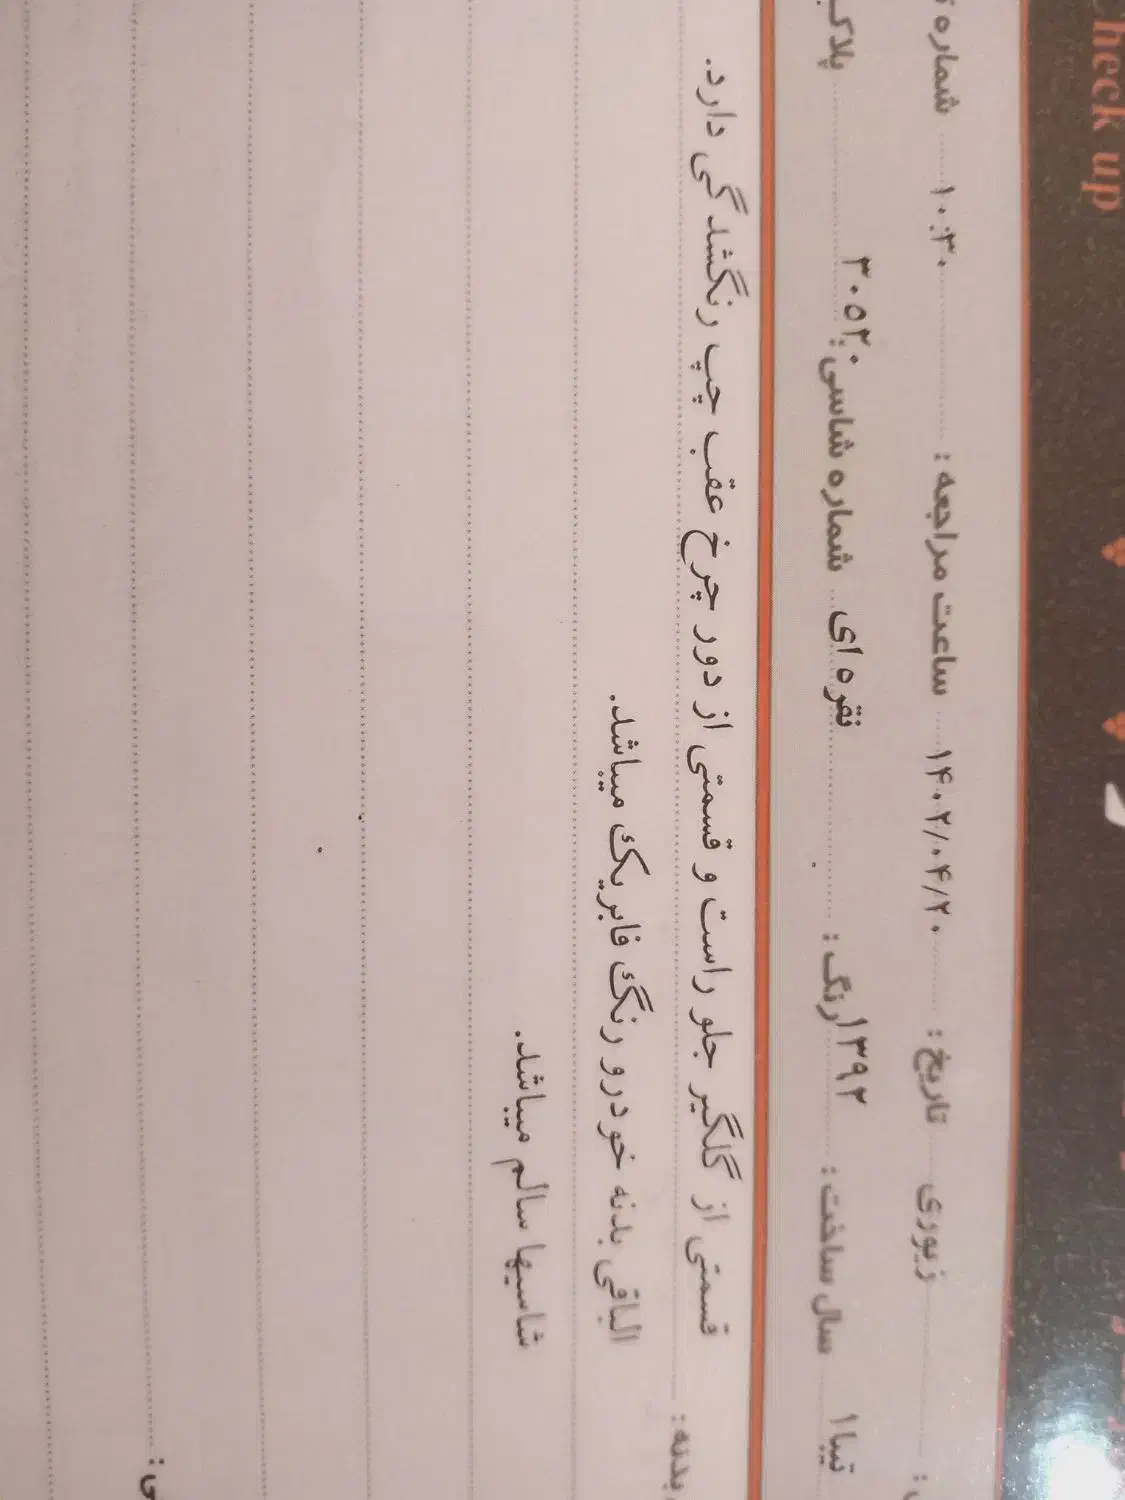 heck up
زیوری تاریخ : ۱۴۰۲/۰۴/۲۰ ساعت مراجعه : ۱۰:۳۰ شماره
تیبا۱ سال ساخت : ۱۳۹۲ رنگ : نقره ای شماره شاسی : ۳۰۵۲۰ پلاک
بدنه :
قسمتی از گلگیر جلو راست و قسمتی از دور چرخ عقب چپ رنگشدگی دارد.
الباقی بدنه خودرو رنگ فابریک میباشد.
شاسیها سالم میباشد.